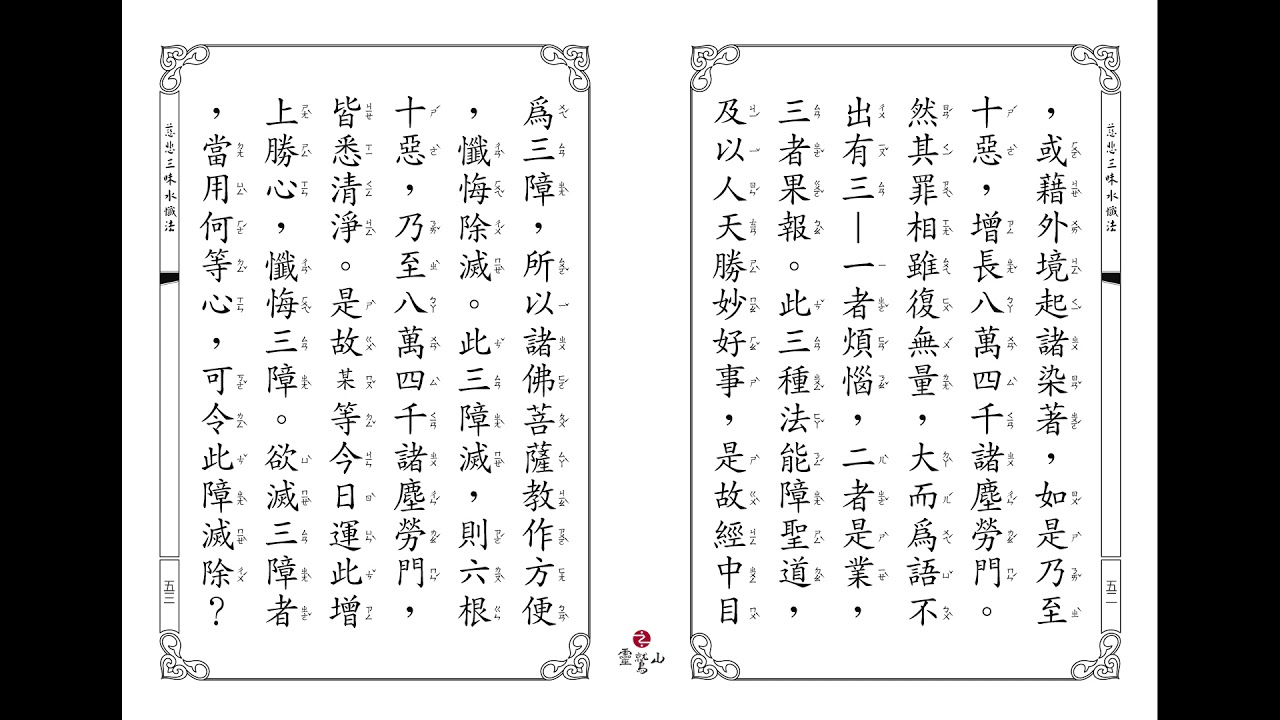 慈悲三昧水懺法
，或藉外境起諸染著，如是乃至
十惡，增長八萬四千諸塵勞門。
然其罪相雖復無量，大而爲語不
出有三—一者煩惱，二者是業，
三者果報。此三種法能障聖道，
及以人天勝妙好事，是故經中目
五二
爲三障，所以諸佛菩薩教作方便
，懺悔除滅。此三障滅，則六根
十惡，乃至八萬四千諸塵勞門，
皆悉清淨。是故某等今日運此增
上勝心，懺悔三障。欲滅三障者
，當用何等心，可令此障滅除？
慈悲三昧水懺法
五三
靈鷲山